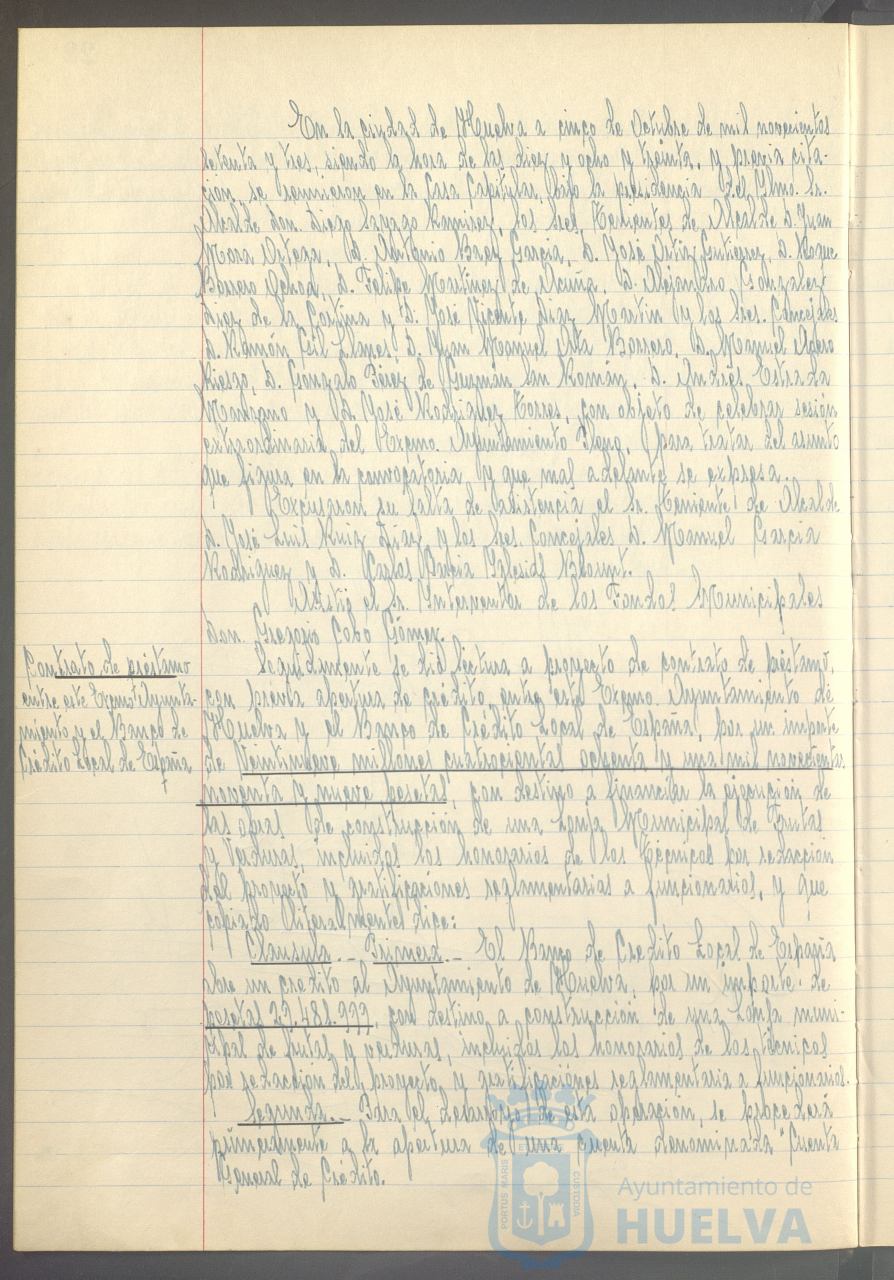 En la ciudad de Huelva a cinco de Octubre de mil novecientos
setenta y tres, siendo la hora de las diez y ocho y treinta, y previa cita-
ción, se reunieron en la Casa Capitular, bajo la presidencia del Ilmo. Sr.
Alcalde don Diego Sayago Ramírez, los Sres. Tenientes de Alcalde D. Juan
Mora Ortega, D. Antonio Baez García, D. José Ortiz Gutiérrez, D. Roque
Borrero Ochoa, D. Felipe Martínez de Acuña, D. Alejandro González
Díez de la Cortina y D. José Vicente Díaz Martín y los Sres. Concejales
D. Ramón Gil Llanes, D. Juan Manuel Rita Borrero, D. Manuel Agero
Riesgo, D. Gonzalo Pérez de Guzmán San Román, D. Andrés Estrada
Manzano y D. José Rodríguez Torres, con objeto de celebrar sesión
extraordinaria del Excmo. Ayuntamiento Pleno, para tratar del asunto
que figura en la convocatoria y que mal adelante se expresa.
Excusaron su falta de asistencia el Sr. Teniente de Alcalde
D. José Luis Ruiz Díaz y los Sres. Concejales D. Manuel García
Rodríguez y D. Carlos García Iglesias
Asistió el Sr. Interventor de los Fondos Municipales
don Gregorio Cobo Gómez.
Contrato de préstamo
entre este Excmo. Ayunta-
miento y el Banco de
Crédito Local de España
Seguidamente se dió lectura a proyecto de contrato de préstamo,
con previa apertura de crédito, entre este Excmo. Ayuntamiento de
Huelva y el Banco de Crédito Local de España, por un importe
de Veintinueve millones cuatrocientas ochenta y una mil novecientas
noventa y nueve pesetas, con destino a financiar la ejecución de
las obras de construcción de una Lonja Municipal de Frutas
y Verduras, incluidos los honorarios de los Técnicos por redacción
del proyecto y gratificaciones reglamentarias a funcionarios, y que
copiado literalmente dice:
Clausula.- Primera.- El Banco de Crédito Local de España
abre un crédito al Ayuntamiento de Huelva, por un importe de
pesetas 29.481.999, con destino a construcción de una Lonja muni-
cipal de frutas y verduras, incluidos los honorarios de los técnicos
por redacción del proyecto, y gratificaciones reglamentaria a funcionarios.
Segunda.- Para el desarrollo de esta operación, se procederá
primeramente a la apertura de una cuenta denominada "Cuenta
General de Crédito.
PORTUS MARIS
CUSTODIA
Ayuntamiento de
HUELVA